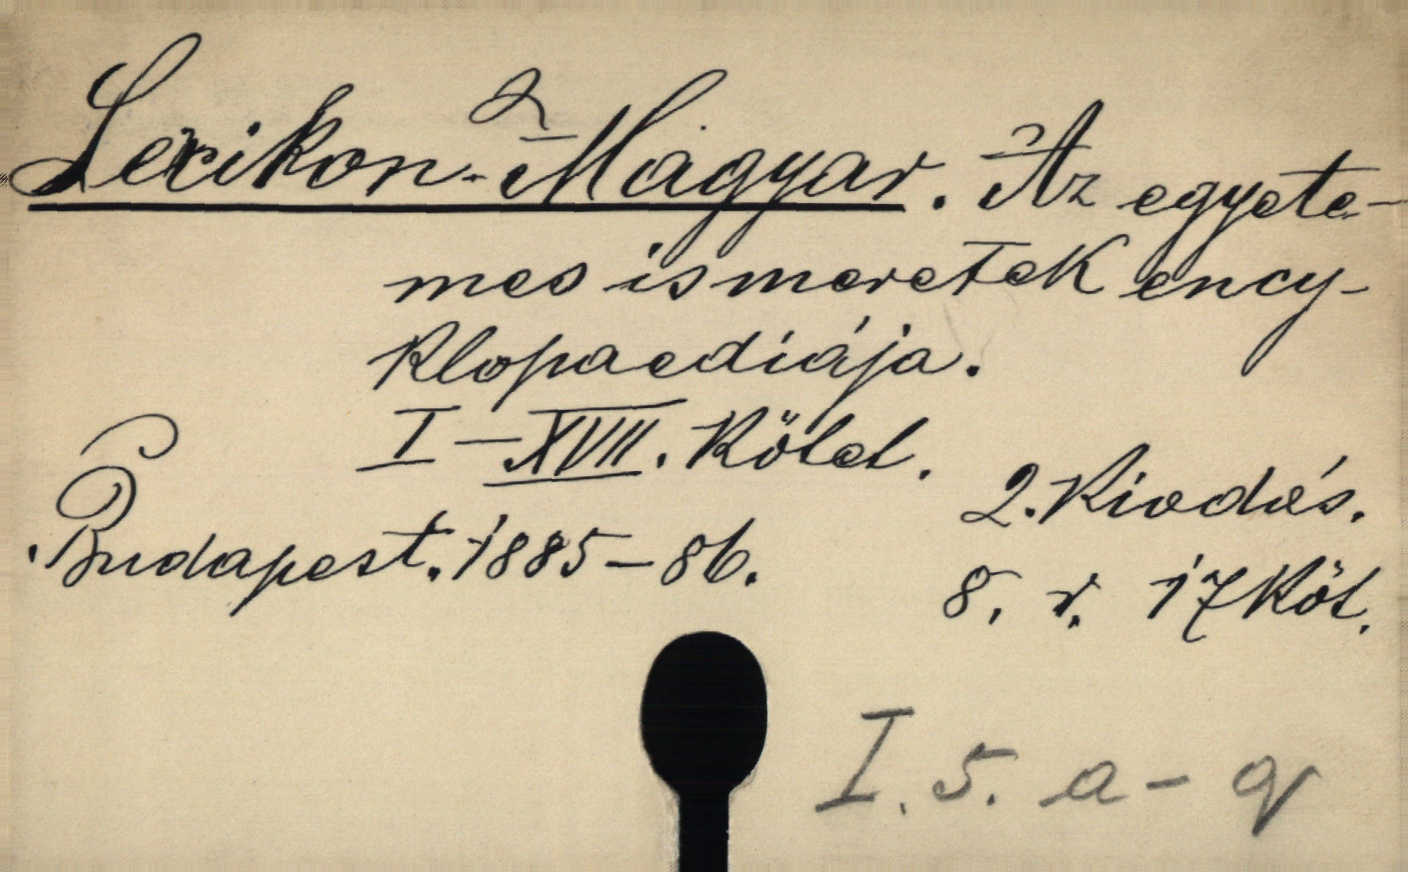 Lexikon-Magyar. Az egyete-
mes ismeretek ency-
klopaediája.
I–XVII. Kötet.
2. Kiadás.
Budapest. 1885–86.
8. r. 17 Köt.
I. 5. a – q